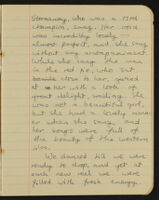 Stornoway, who was a Mod
champion, sang. Her voice
was incredibly lovely —
almost perfect, and she sang
without any accompaniment.
While she sang the man
in the red tie, who sat
beside close to her, gazed
at her with a look of
great delight, smiling. She
was not a beautiful girl,
but she had a lovely
when she sang, and
her songs were full of
the beauty of the western
isles.
We danced till we were
ready to drop, and yet at
each new reel we were
filled with fresh energy.